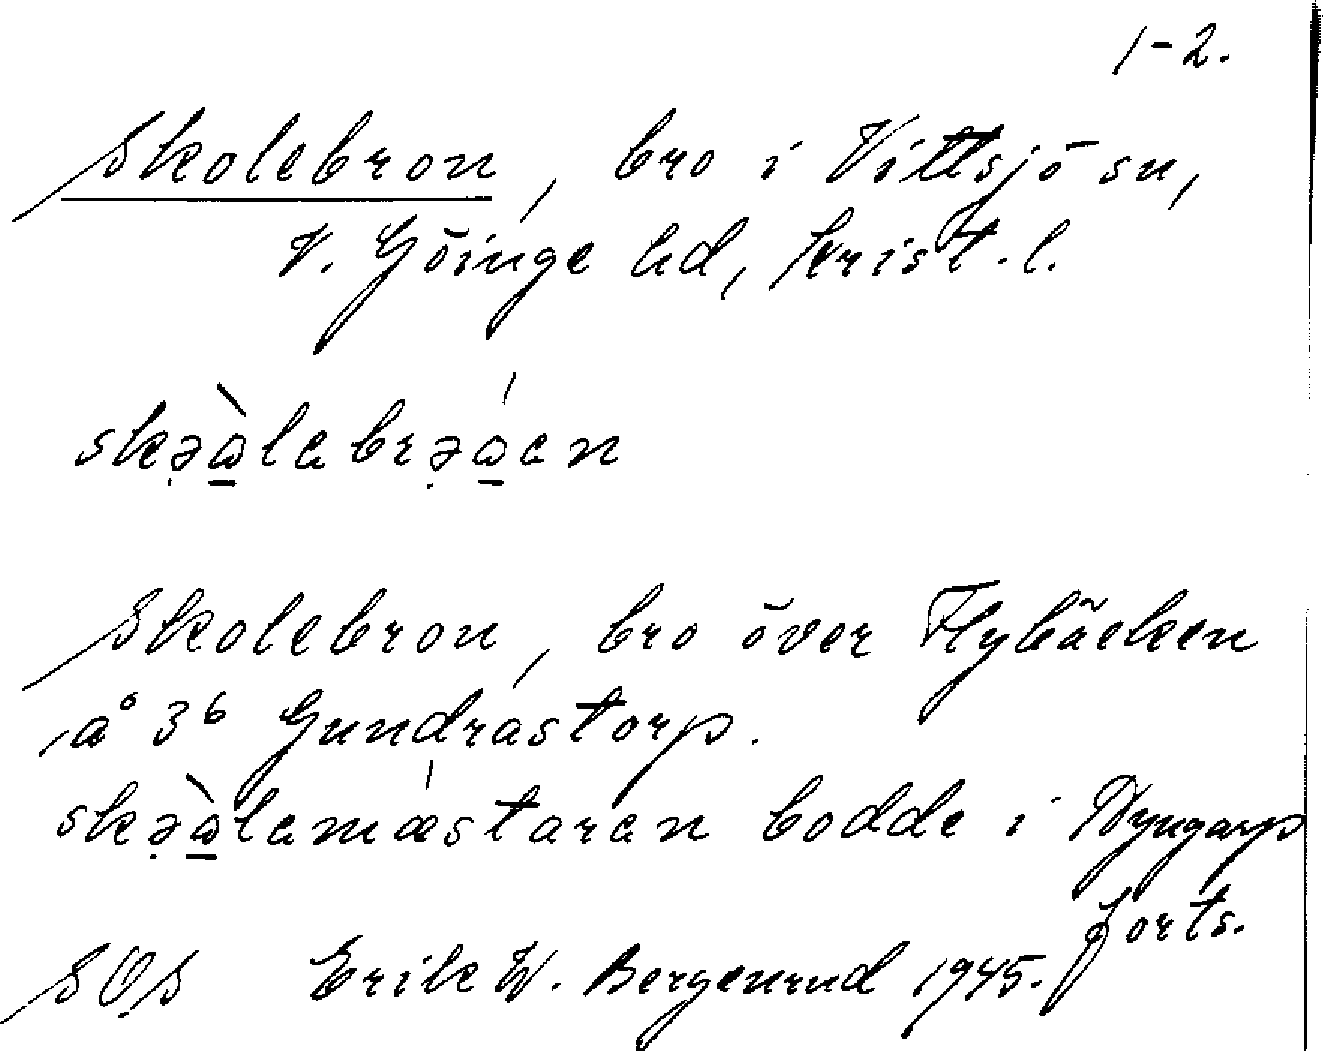 1-2.
Skolebron, bro i Vittsjö sn,
V. Göinge hd, Krist. l.
skə̣ὰ̱lebrə̣ά̱en
Skolebron, bro över Flybäcken
å 3⁶ Gundrastorp.
skə̣ὰ̱lemæstaren bodde i
forts.
SOS Erik W. Bergenrud 1945.